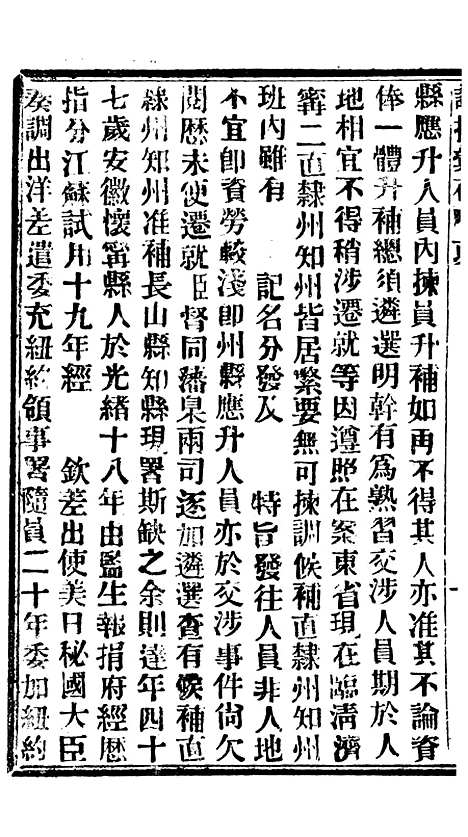 縣應升人員內揀員升補如再不得其人亦准其不論資
俸一體升補繼須遴選明幹有爲熟習交涉人員期於人
地相宜不得稍涉遷就等因遵照在案東省現在臨清濟
寗二直隸州知州皆居緊要無可揀調候補直隸州知州
班內雖有 記名分發及 特旨發往人員非人地
不宜卽資勞較淺卽州縣應升人員亦於交涉事件尙欠
閱歷未便遷就臣督同藩臬兩司逐加遴選查有候補直
隸州知州准補長山縣知縣現署斯缺之余則達年四十
七歲安徽懷寗縣人於光緒十八年由監生報捐府經歷
指分江蘇試用十九年經 欽差出使美日秘國大臣
奏調出洋差遣委充紐約領事署隨員二十年委加紐約